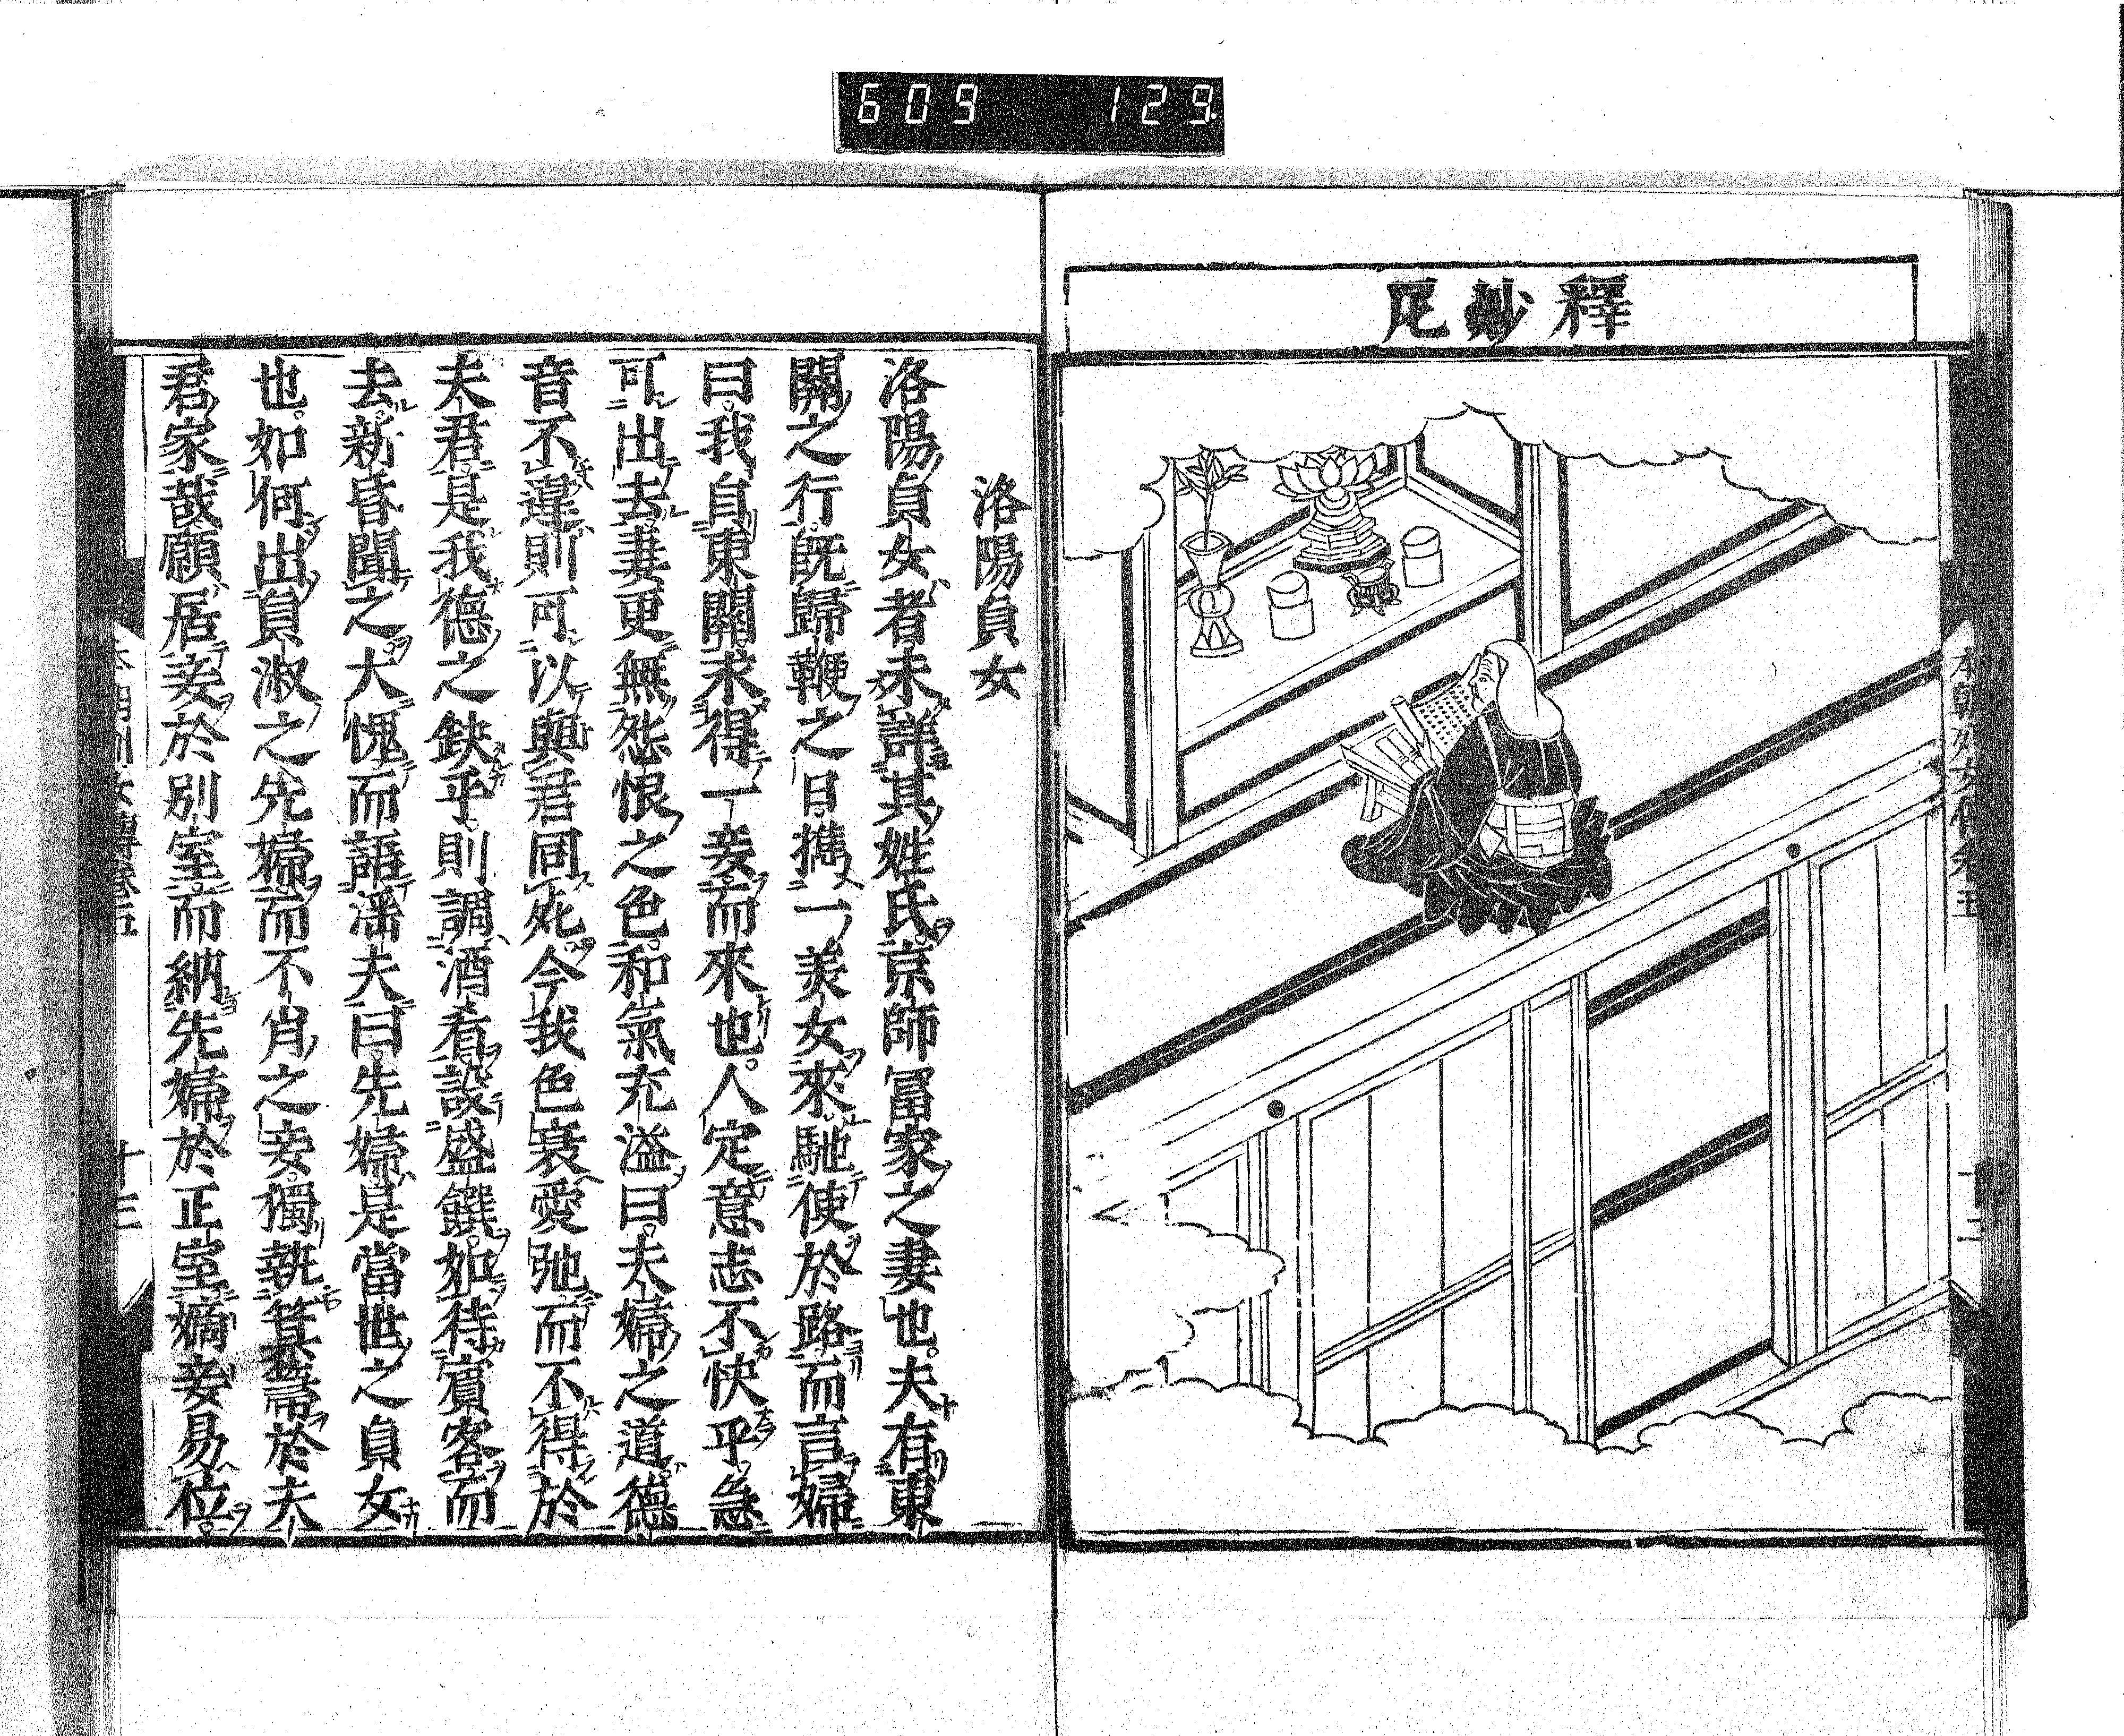 609 129
釋妙尼
本朝列女傳卷五
十二
洛陽貞女
洛陽貞女者未詳其姓氏京師冨家之妻也。夫有東
關之行。既歸鞭之日。攜一美女來馳使於路而言婦
曰。我自東關。求得一妾而來也。人定意志不快乎。急
可出去。妻更無怨恨之色。和氣充溢曰。夫婦之道。德
音不違則可以與君同死。今我色衰愛弛而不得於
夫君。是我德之缺乎。則調酒肴設盛饌。如待賓客而
去。新昏聞之大愧而語淫夫曰。先婦是當世之貞女
也。如何出貞淑之先婦而不肖之妾。獨執箕箒於夫
君家哉。願居妾於別室而納先婦於正室嫡妾易位。
本朝列女傳卷五
十三